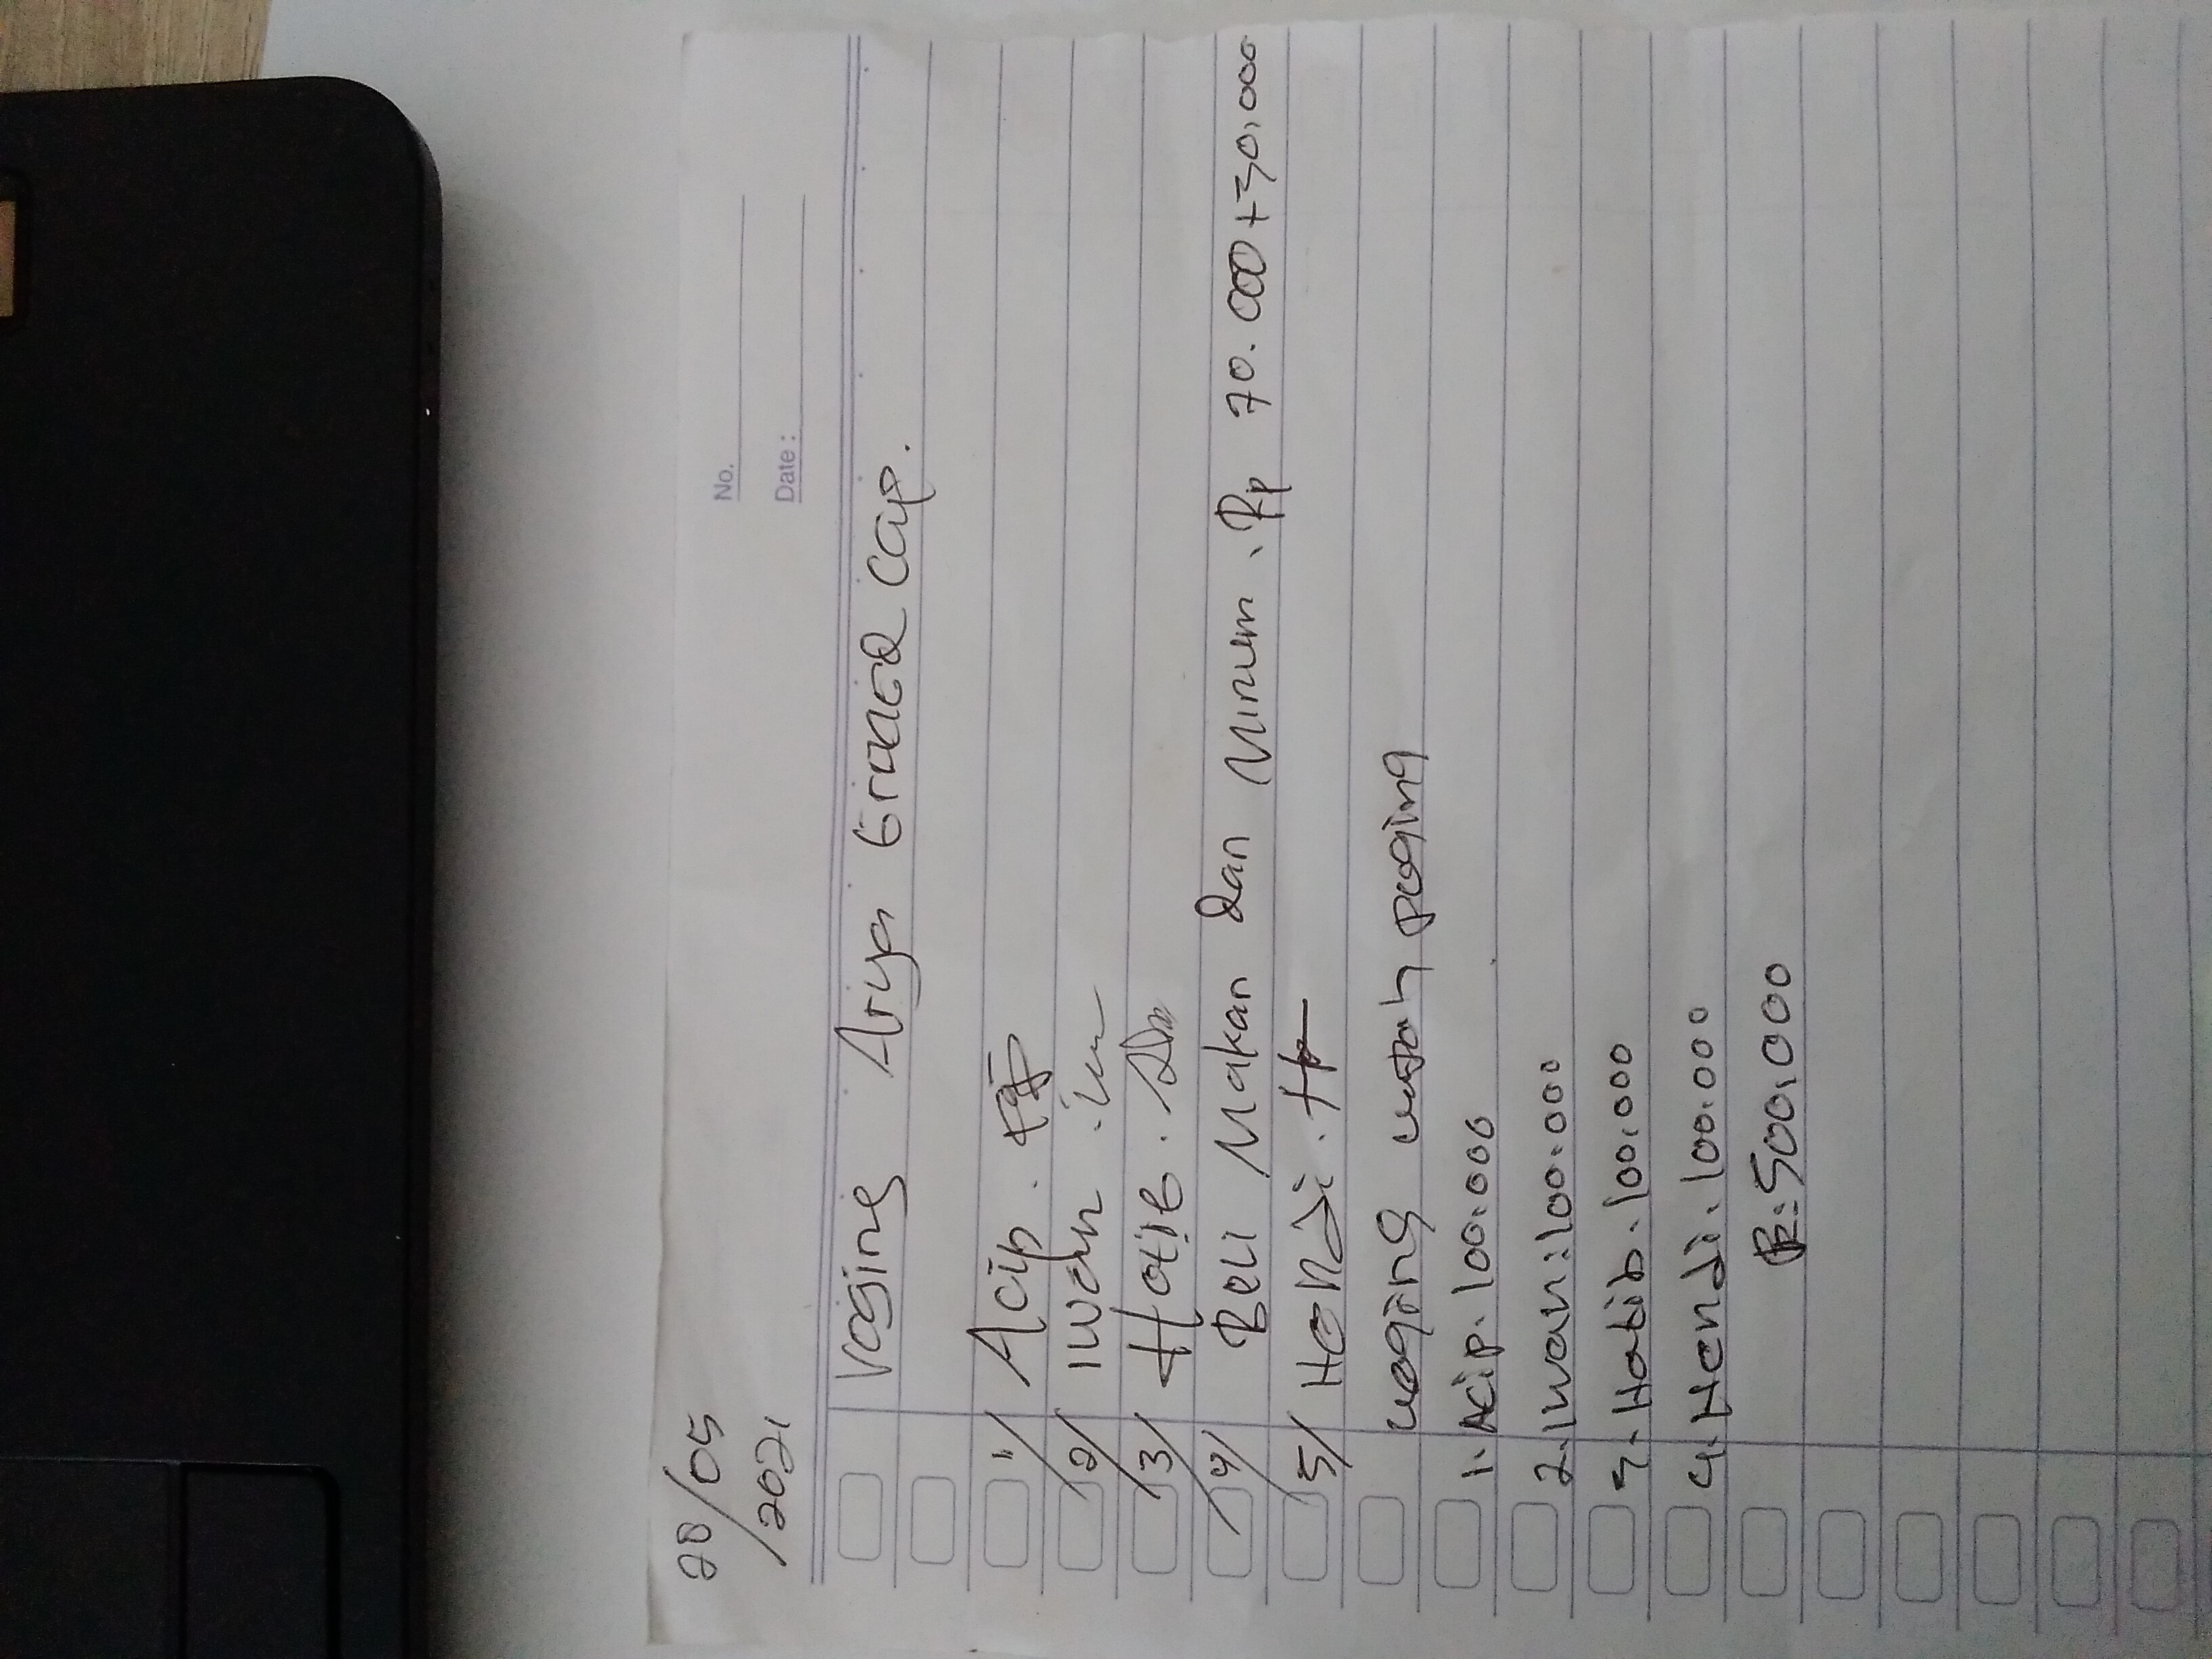 28/05
/2021
No.
Date:
Voging Arya Graed cap.
1/ Acip.
2/ iwan.
3/ Hotib.
4/ Beli Makan dan Minum. Rp 70.000+30.000
5/ Hendi.
woging upah poging
1. Acip. 100.000
2. Iwan: 100.000
3. Hotib. 100.000
4. Hendi. 100.000
Rp: 500.000